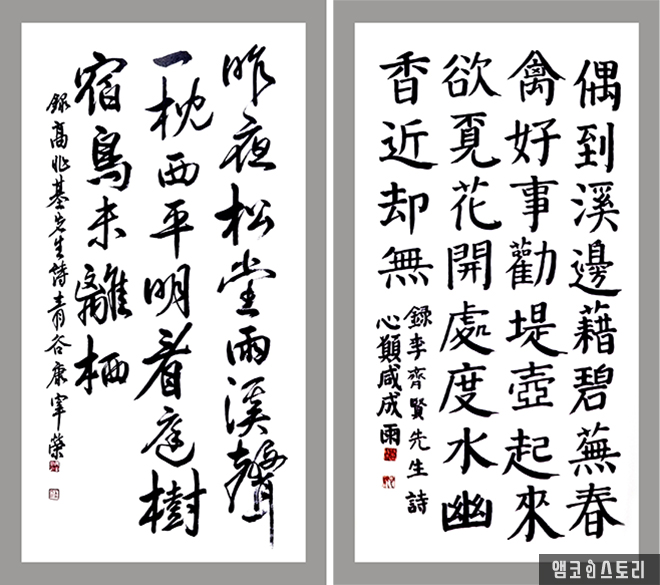 昨夜松堂雨溪聲
一枕西平明看庭樹
宿鳥未離栖
錄高兆基先生詩青谷康宰榮
偶到溪邊藉碧蕪春
禽好事勸提壺起來
欲覓花開處度水幽
香近却無
錄李齊賢先生詩
心顚咸成雨
앰코인스토리